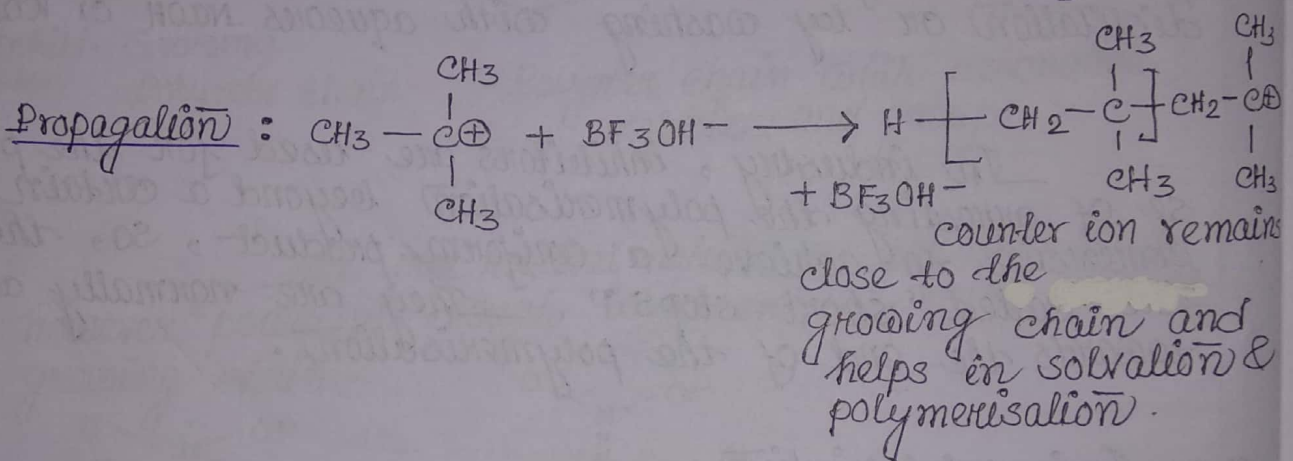 CH3 CH3
CH3
Propagation : CH3 — C⊕ + BF3OH— ⟶ H—[—CH2—C—]—CH2—C⊕
CH3 CH3 CH3
+ BF3OH—
counter ion remains
close to the
growing chain and
helps in solvation &
polymerisation.